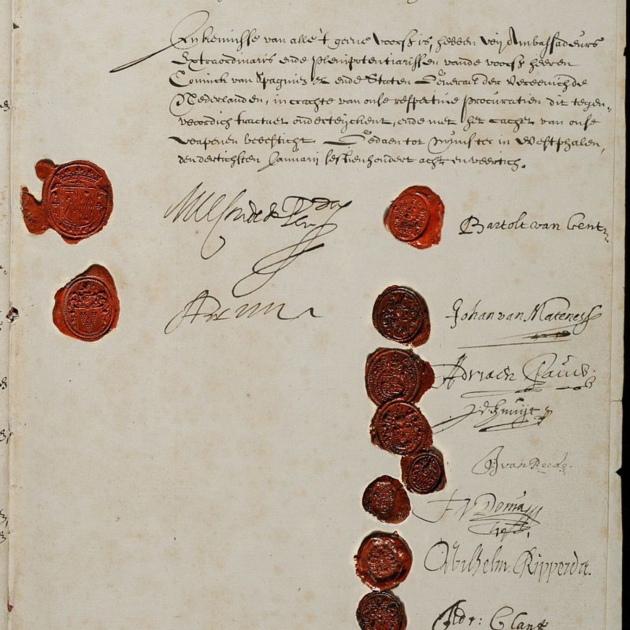 In kennisse van alle 't gene voorsz is, hebben wij Ambassadeurs
Extraordinaris ende Plenipotentiarissen vande voorsz heeren
Coninck van Spagnien, ende Staten Generael der Vereenichde
Nederlanden, in crachte van onse respective procuratien dit tegen-
woordich tractaet onderteijckent, ende met het cachet van onse
wapenen bevesticht. Gedaen tot Munster in Westphalen,
den dertichsten Januarij sesthienhondert acht en veertich.
Bartolt van Gent
Johan van Matenes
Adriaen Pauw
J. de Knuijt
G van Reede
F V Donia
Wilhelm Ripperda
Adr: Clant